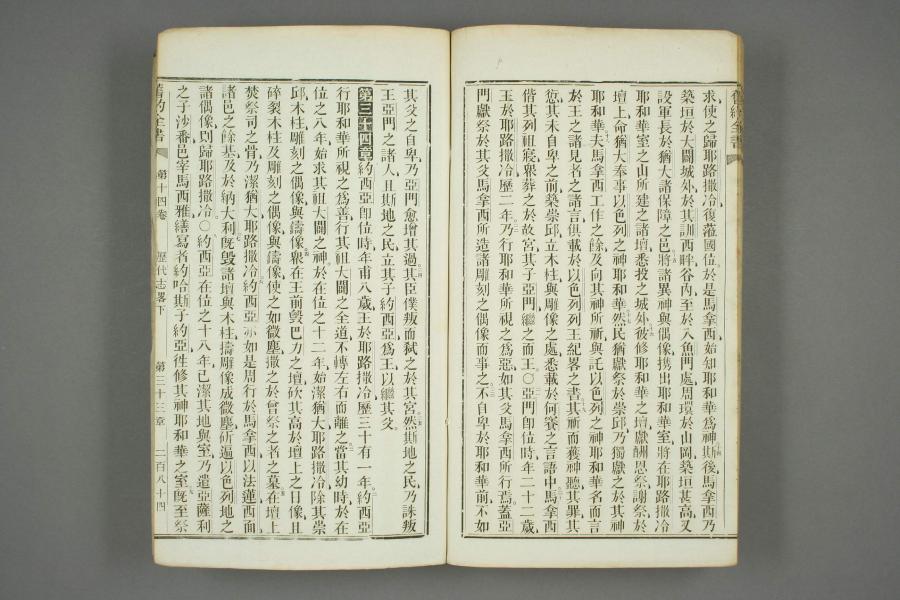 求使之歸耶路撒冷復蒞國位於是馬拿西始知耶和華爲神斯後馬拿西乃
築垣於大闢城外於其訓西畔谷內至於入魚門處周環於山岡築垣甚高又
設軍長於猶大諸保障之邑將諸異神與偶像携出耶和華室將在耶路撒冷
耶和華室之山所建之諸壇悉投之城外後修耶和華之壇獻酬恩祭謝祭於
壇上命猶大奉事以色列之神耶和華然民猶獻祭於崇邱乃獨獻之於其神
耶和華夫馬拿西工作之餘及向其神所祈與託以色列之神耶和華名而言
於王之諸見者之諸言俱載於以色列列王紀畧之書其祈而獲神聽其罪其
愆其未自卑之前築崇邱立木柱與雕像之處悉載於何賽之言語中馬拿西
偕其列祖寢衆葬之於故宮其子亞門繼之而王〇亞門卽位時年二十二歲
王於耶路撒冷歷二年乃行耶和華所視之爲惡如其父馬拿西所行焉蓋亞
門獻祭於其父馬拿西所造諸雕刻之偶像而事之不自卑於耶和華前不如
其父之自卑乃亞門愈增其過其臣僕叛而弑之於其宮然斯地之民乃誅叛
王亞門之諸人且斯地之民立其子約西亞爲王以繼其父
第三十四章約西亞卽位時年甫八歲王於耶路撒冷歷三十有一年約西亞
行耶和華所視之爲善行其祖大闢之全道不轉左右而離之當其幼時於在
位之八年始求其祖大闢之神於在位之十二年始潔猶大耶路撒冷除其崇
邱木柱雕刻之偶像與鑄像衆在王前毀巴力之壇砍其高於壇上之日像且
碎裂木柱及雕刻之偶像與鑄像使之如微塵撒之於曾祭之者之墓在壇上
焚祭司之骨乃潔猶大耶路撒冷約西亞亦如是周行於馬拿西以法蓮西面
諸邑之餘基及於納大利旣毀諸壇與木柱擣雕像成微塵斫遍以色列地之
諸偶像則歸耶路撒冷〇約西亞在位之十八年已潔其地與室乃遣亞薩利
之子沙番邑宰馬西雅繕寫者約哈斯子約亞往修其神耶和華之室旣至祭
舊約全書 第十四卷 歷代志畧下 第三十三章 二百八十四